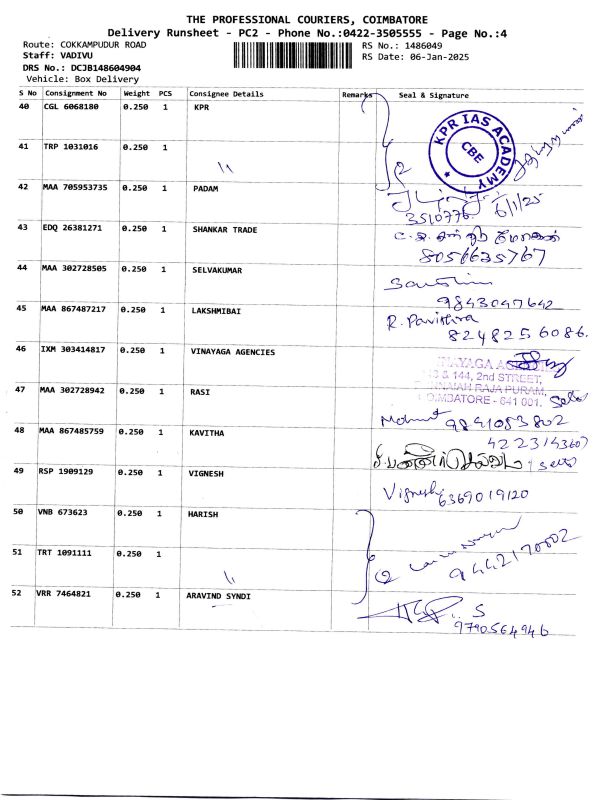 THE PROFESSIONAL COURIERS, COIMBATORE
Delivery Runsheet - PC2 - Phone No.:0422-3505555 - Page No.:4
Route: COKKAMPUDUR ROAD
RS No.: 1486049
Staff: VADIVU
RS Date: 06-Jan-2025
DRS No.: DCJB148604904
Vehicle: Box Delivery
S No Consignment No Weight PCS Consignee Details Remarks Seal & Signature
40 CGL 6068180 0.250 1 KPR
KPR IAS ACADEMY
CBE
41 TRP 1031016 0.250 1 \\
42 MAA 705953735 0.250 1 PADAM
3510776. 6/1/25
43 EDQ 26381271 0.250 1 SHANKAR TRADE
8056635767
44 MAA 302728505 0.250 1 SELVAKUMAR
9843047642
45 MAA 867487217 0.250 1 LAKSHMIBAI
R. Pavithra
8248256086.
46 IXM 303414817 0.250 1 VINAYAGA AGENCIES
& 144, 2nd STREET,
RAJA PURAM,
COIMBATORE - 641 001.
47 MAA 302728942 0.250 1 RASI
9841053802
48 MAA 867485759 0.250 1 KAVITHA
4223143607
49 RSP 1909129 0.250 1 VIGNESH
Vignesh 6369019120
50 VNB 673623 0.250 1 HARISH
51 TRT 1091111 0.250 1 \\
9442170802
52 VRR 7464821 0.250 1 ARAVIND SYNDI
9790564946